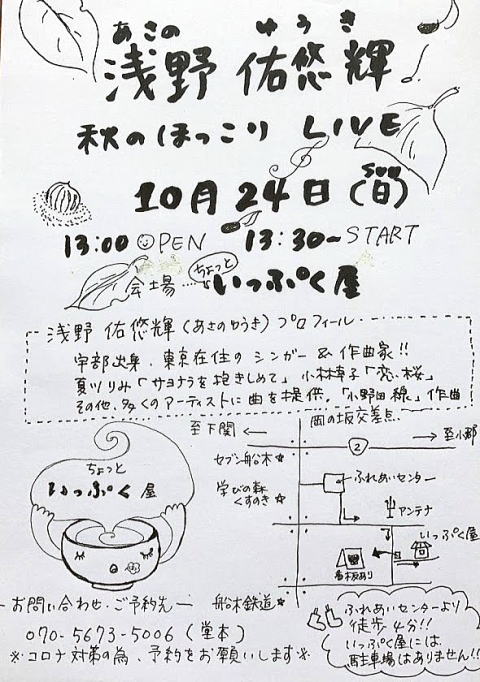 あさの ゆうき
浅野 佑悠輝
秋のほっこり LIVE
10月24日(日)
sun
13:00 OPEN 13:30~START
会場……ちょっと いっぷく屋
浅野 佑悠輝(あさのゆうき)プロフィール
宇部出身、東京在住のシンガー&作曲家!!
夏川りみ「サヨナラを抱きしめて」小林幸子「恋桜」
その他、多くのアーティストに曲を提供。「小野田線」作曲
岡の坂交差点
至下関 ← → 至小郡
2
セブン船木
ふれあいセンター
学びの森
くすのき
アンテナ
いっぷく屋
看板あり
ちょっと
いっぷく屋
お問い合わせ・ご予約先
船木鉄道
070-5673-5006(堂本)
※コロナ対策の為、予約をお願いします※
ふれあいセンターより
徒歩4分!!
いっぷく屋には
駐車場はありません!!